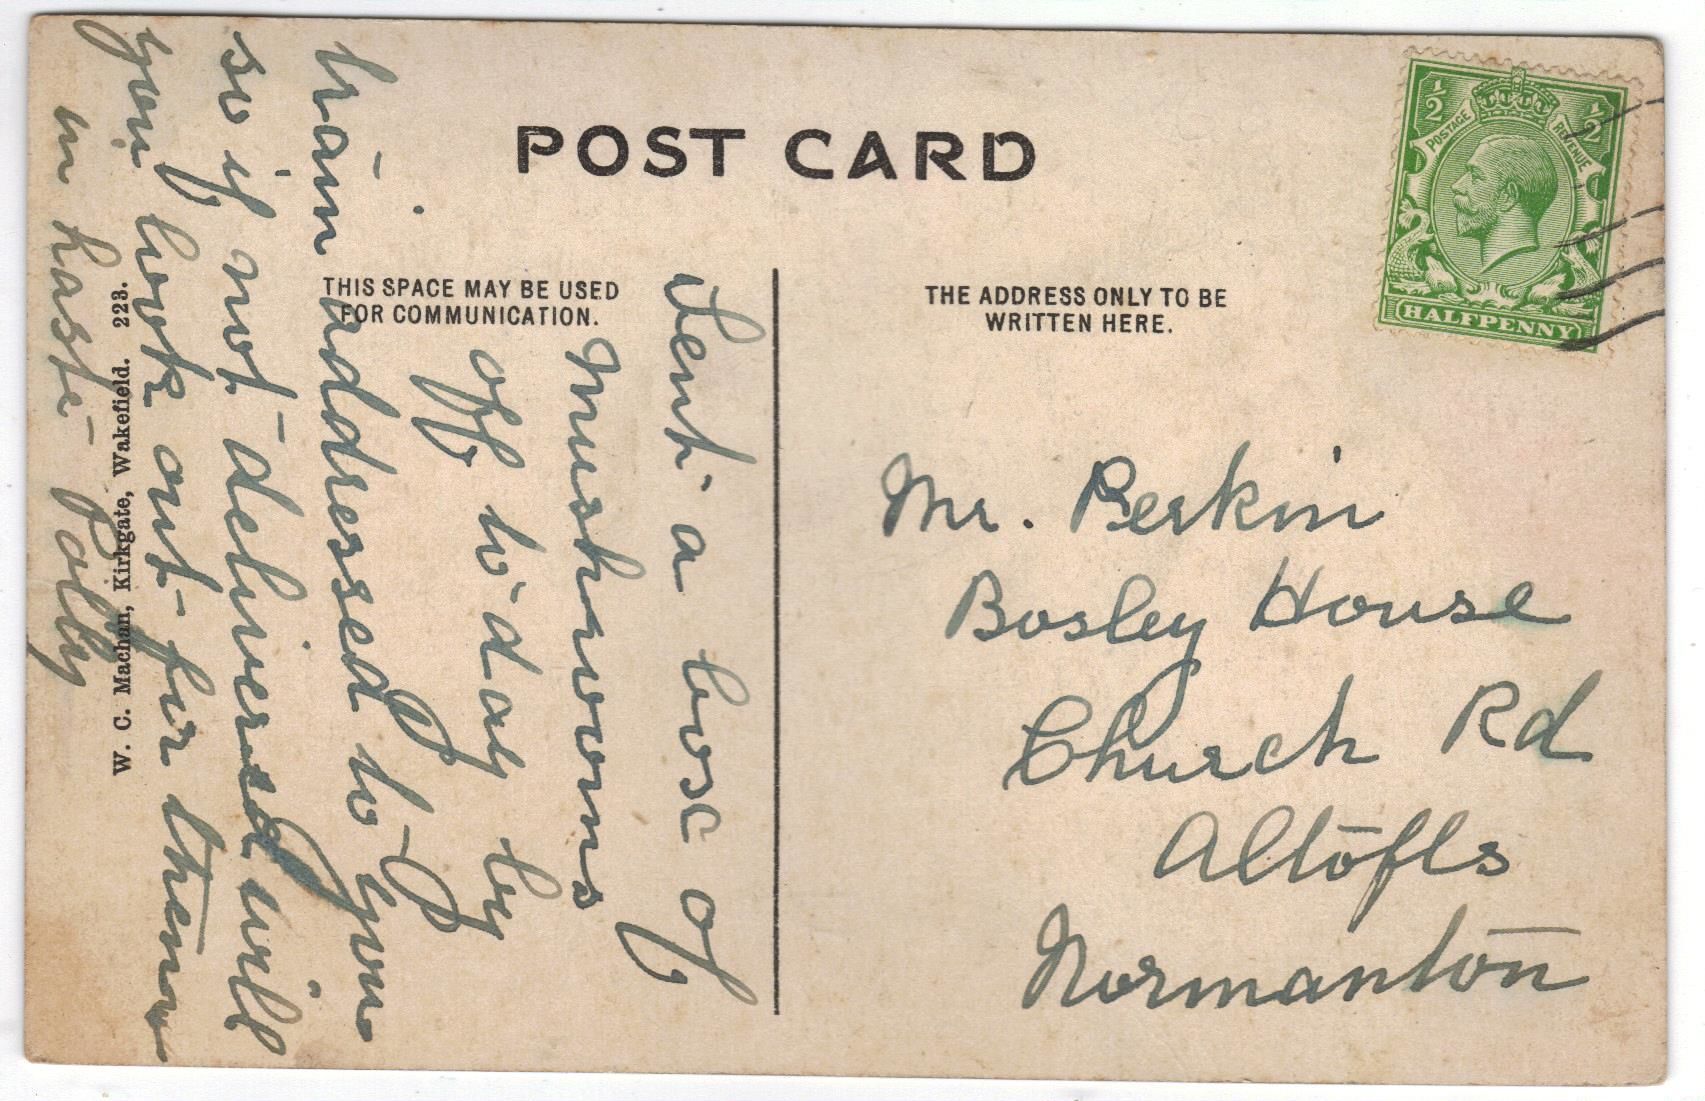 POST CARD
THIS SPACE MAY BE USED
FOR COMMUNICATION.
THE ADDRESS ONLY TO BE
WRITTEN HERE.
½ ½
POSTAGE REVENUE
HALFPENNY
Sent a box of
Mushrooms
off to day by
train addressed to you
so if not delivered will
you look out for them
in haste Polly
W. C. Machan, Kirkgate, Wakefield. 223.
Mr. Perkin
Bosley House
Church Rd
Altofts
Normanton